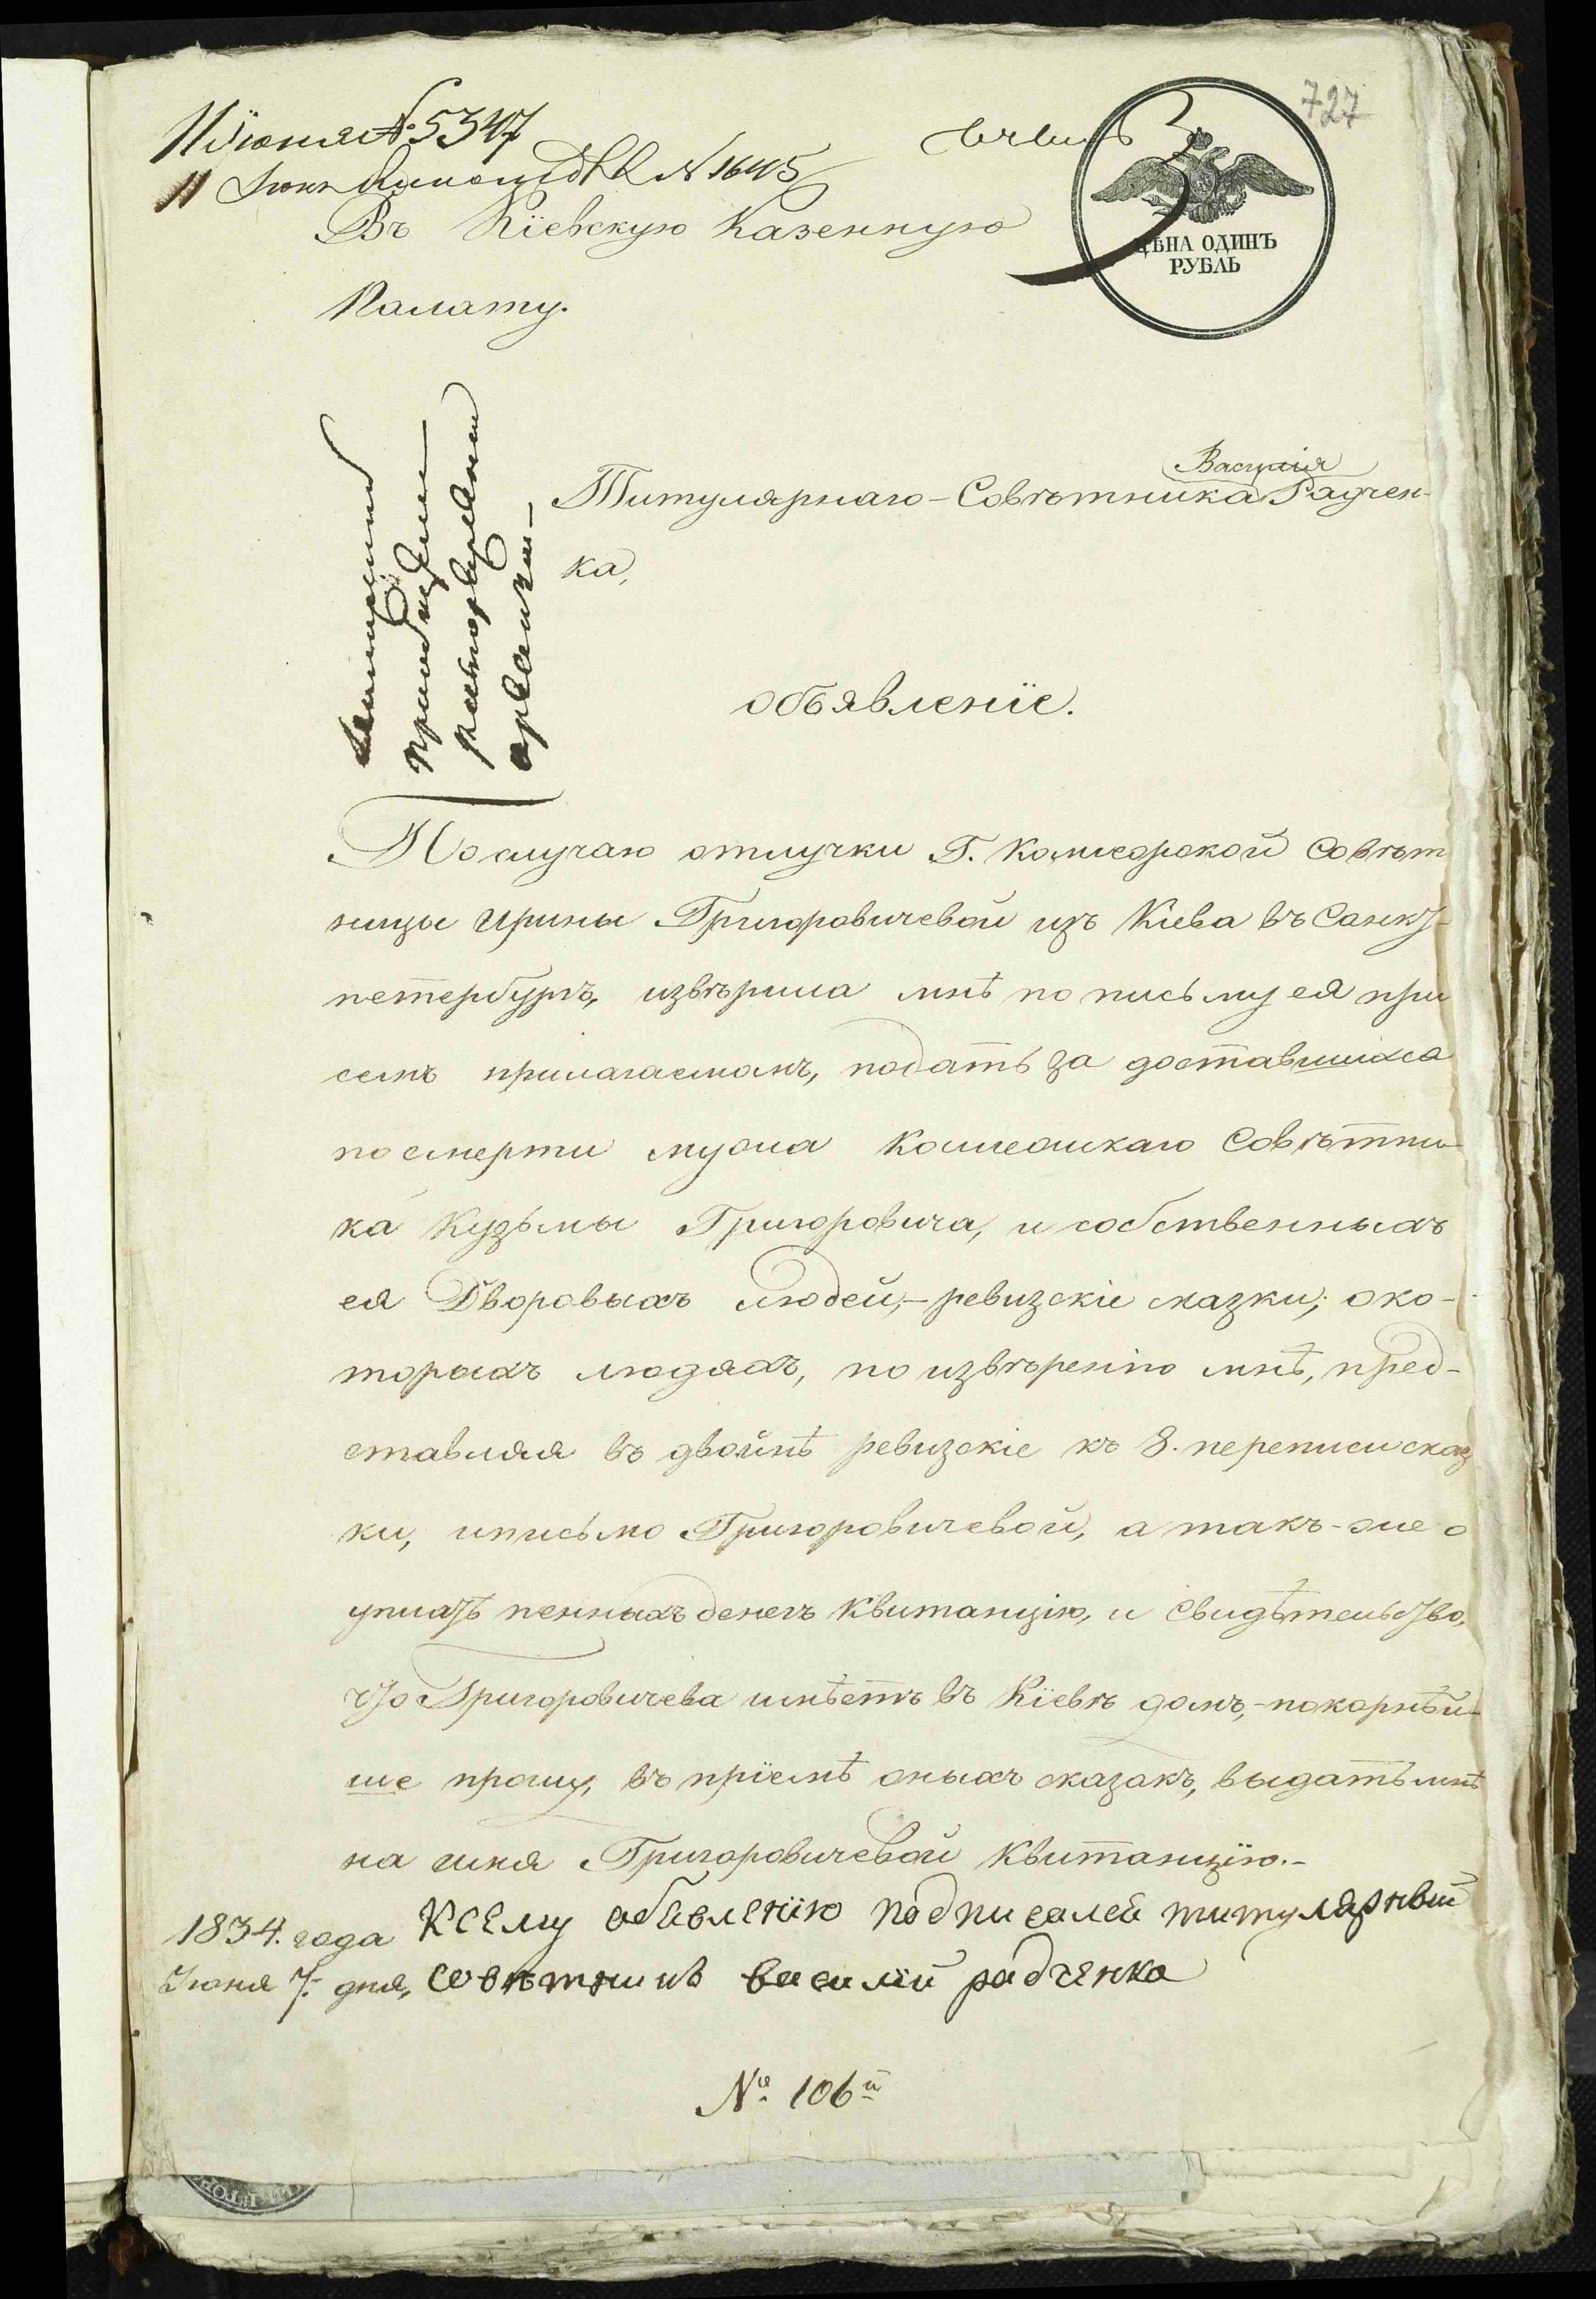 727
11 Іюня № 5347
11 Іюня № 1645
ЦѢНА ОДИНЪ
РУБЛЬ
Въ Кіевскую Казенную
Палату.
Василія
Титулярнаго-Совѣтника Радчен-
ка,
объявленіе.
По случаю отлучки Г. Коллежской Совѣт
ницы Ирины Григоровичевой изъ Кіева въ Санкт-
петербургъ, извѣрила мнѣ по письму ея при
семъ прилагаемомъ, подать за доставшихся
по смерти мужа Коллежскаго Совѣтни-
ка Кузьмы Григоровича, и собственныхъ
ея Дворовыхъ людей,- ревизскіе сказки; око-
торыхъ людяхъ, по извѣренію мнѣ, пред-
ставляя въ двойнѣ ревизскіе къ 8. переписи сказ
ки, и письмо Григоровичевой, а такъ-же о
уплатѣ пенныхъ денегъ квитанцію, и свидѣтельство,
что Григоровичева имѣетъ въ Кіевѣ домъ,- покорнѣй-
ше прошу, въ пріемѣ оныхъ сказокъ, выдать мнѣ
на имя Григоровичевой квитанцію.-
1834. года К сему обявленію подписалси титулярный
Іюня 7. дня, совѣтникъ василій радченко
№ 106й